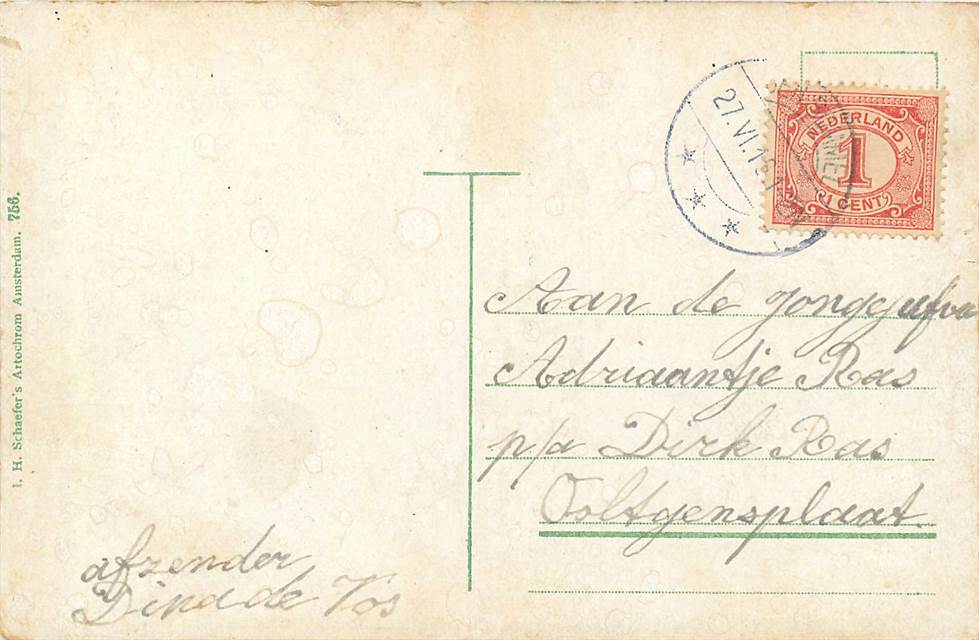 I. H. Schaefer's Artochrom Amsterdam. 756.
27.VI.1
NEDERLAND
1
1 CENT
Aan de Jongejufva
Adriaantje Ras
p/a Dirk Ras
Ooltgensplaat.
afzender
Dina de Vos